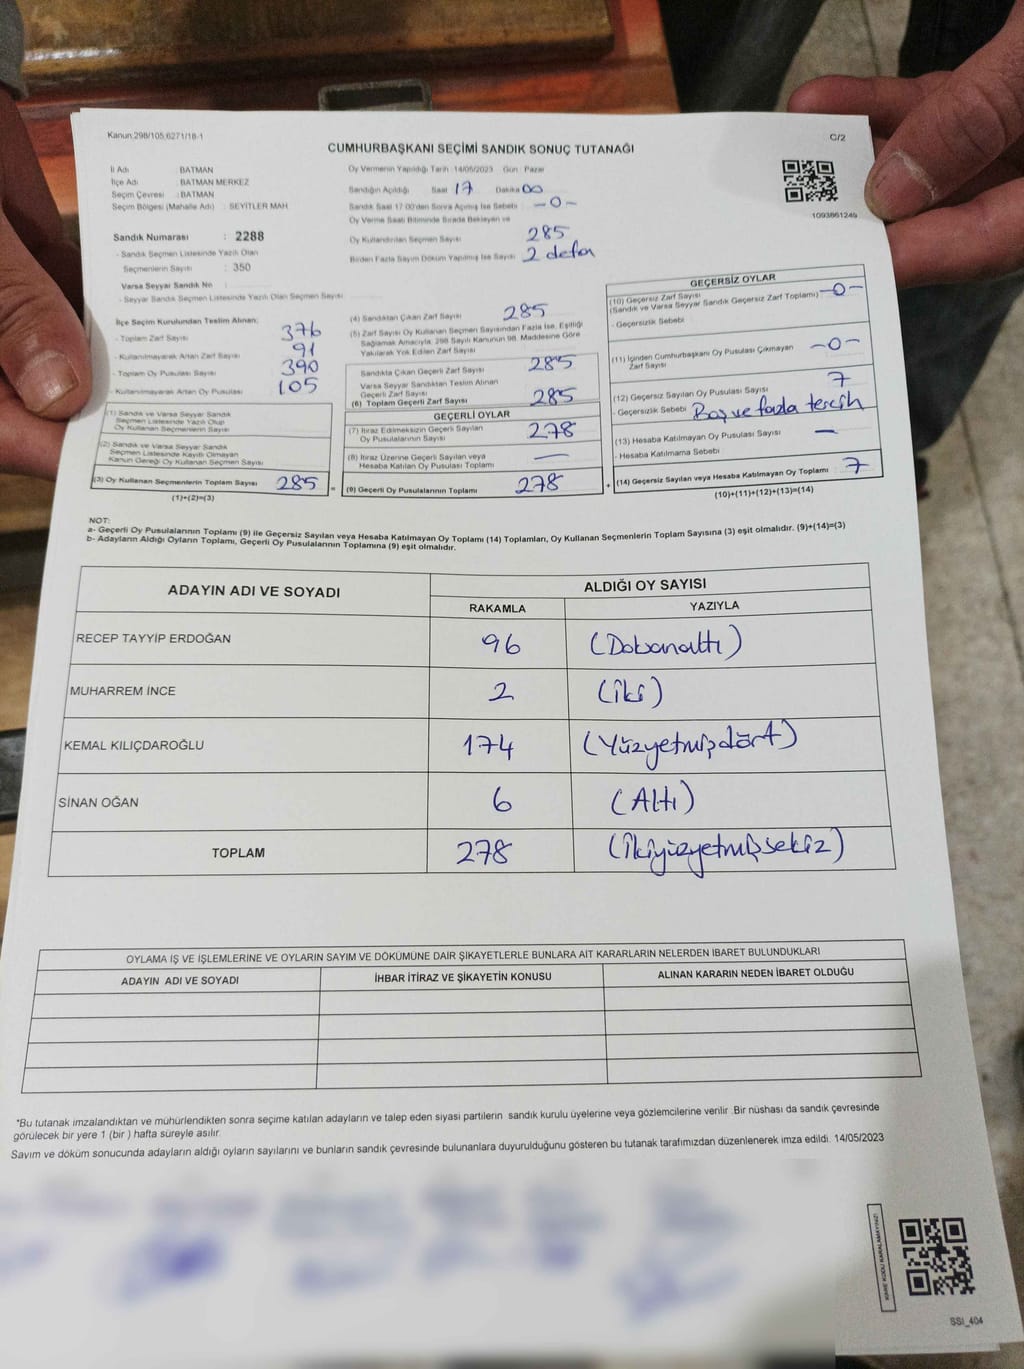 Kanun:298/105,6271/18-1
C/2
CUMHURBAŞKANI SEÇİMİ SANDIK SONUÇ TUTANAĞI
İl Adı BATMAN
İlçe Adı : BATMAN MERKEZ
Seçim Çevresi : BATMAN
Seçim Bölgesi (Mahalle Adı) : SEYİTLER MAH.
Oy Vermenin Yapıldığı Tarih 14/05/2023 Gün : Pazar
Sandığın Açıldığı Saat 17 Dakika 00
Sandık Saat 17:00'den Sonra Açılmış İse Sebebi -0-
Oy Verme Saati Bitiminde Sırada Bekleyen ve
Oy Kullandırılan Seçmen Sayısı 285
Birden Fazla Sayım Döküm Yapılmış İse Sayısı 2 defa
1093861249
Sandık Numarası : 2288
- Sandık Seçmen Listesinde Yazılı Olan
Seçmenlerin Sayısı : 350
Varsa Seyyar Sandık No :
- Seyyar Sandık Seçmen Listesinde Yazılı Olan Seçmen Sayısı
İlçe Seçim Kurulundan Teslim Alınan;
- Toplam Zarf Sayısı 376
- Kullanılmayarak Artan Zarf Sayısı 91
- Toplam Oy Pusulası Sayısı 390
- Kullanılmayarak Artan Oy Pusulası 105
(1) Sandık ve Varsa Seyyar Sandık
Seçmen Listesinde Yazılı Olup
Oy Kullanan Seçmenlerin Sayısı
(2) Sandık ve Varsa Seyyar Sandık
Seçmen Listesinde Kayıtlı Olmayan
Kanun Gereği Oy Kullanan Seçmen Sayısı
(3) Oy Kullanan Seçmenlerin Toplam Sayısı 285
(1)+(2)=(3)
(4) Sandıktan Çıkan Zarf Sayısı 285
(5) Zarf Sayısı Oy Kullanan Seçmen Sayısından Fazla İse, Eşitliği
Sağlamak Amacıyla, 298 Sayılı Kanunun 98. Maddesine Göre
Yakılarak Yok Edilen Zarf Sayısı
Sandıkta Çıkan Geçerli Zarf Sayısı 285
Varsa Seyyar Sandıktan Teslim Alınan
Geçerli Zarf Sayısı
(6) Toplam Geçerli Zarf Sayısı 285
GEÇERLİ OYLAR
(7) İtiraz Edilmeksizin Geçerli Sayılan
Oy Pusulalarının Sayısı 278
(8) İtiraz Üzerine Geçerli Sayılan veya
Hesaba Katılan Oy Pusulası Toplamı —
= (9) Geçerli Oy Pusulalarının Toplamı 278
GEÇERSİZ OYLAR
(10) Geçersiz Zarf Sayısı
(Sandık ve Varsa Seyyar Sandık Geçersiz Zarf Toplamı) -0-
- Geçersizlik Sebebi
(11) İçinden Cumhurbaşkanı Oy Pusulası Çıkmayan
Zarf Sayısı -0-
(12) Geçersiz Sayılan Oy Pusulası Sayısı 7
- Geçersizlik Sebebi Boş ve fazla tercih
(13) Hesaba Katılmayan Oy Pusulası Sayısı —
- Hesaba Katılmama Sebebi
+ (14) Geçersiz Sayılan veya Hesaba Katılmayan Oy Toplamı 7
(10)+(11)+(12)+(13)=(14)
NOT:
a- Geçerli Oy Pusulaları Toplamı (9) ile Geçersiz Sayılan veya Hesaba Katılmayan Oy Toplamı (14) Toplamları, Oy Kullanan Seçmenlerin Toplam Sayısına (3) eşit olmalıdır. (9)+(14)=(3)
b- Adayların Aldığı Oyların Toplamı, Geçerli Oy Pusulalarının Toplamına (9) eşit olmalıdır.
ADAYIN ADI VE SOYADI ALDIĞI OY SAYISI
RAKAMLA YAZIYLA
RECEP TAYYİP ERDOĞAN 96 (Doksanaltı)
MUHARREM İNCE 2 (İki)
KEMAL KILIÇDAROĞLU 174 (Yüzyetmişdört)
SİNAN OĞAN 6 (Altı)
TOPLAM 278 (İkiyüzyetmişsekiz)
OYLAMA İŞ VE İŞLEMLERİNE VE OYLARIN SAYIM VE DÖKÜMÜNE DAİR ŞİKAYETLERLE BUNLARA AİT KARARLARIN NELERDEN İBARET BULUNDUKLARI
ADAYIN ADI VE SOYADI İHBAR İTİRAZ VE ŞİKAYETİN KONUSU ALINAN KARARIN NEDEN İBARET OLDUĞU
*Bu tutanak imzalandıktan ve mühürlendikten sonra seçime katılan adayların ve talep eden siyasi partilerin sandık kurulu üyelerine veya gözlemcilerine verilir .Bir nüshası da sandık çevresinde
görülecek bir yere 1 (bir ) hafta süreyle asılır.
Sayım ve döküm sonucunda adayların aldığı oyların sayılarını ve bunların sandık çevresinde bulunanlara duyurulduğunu gösteren bu tutanak tarafımızdan düzenlenerek imza edildi. 14/05/2023
KARE KODU KARALAMAYINIZ!
SSI_404